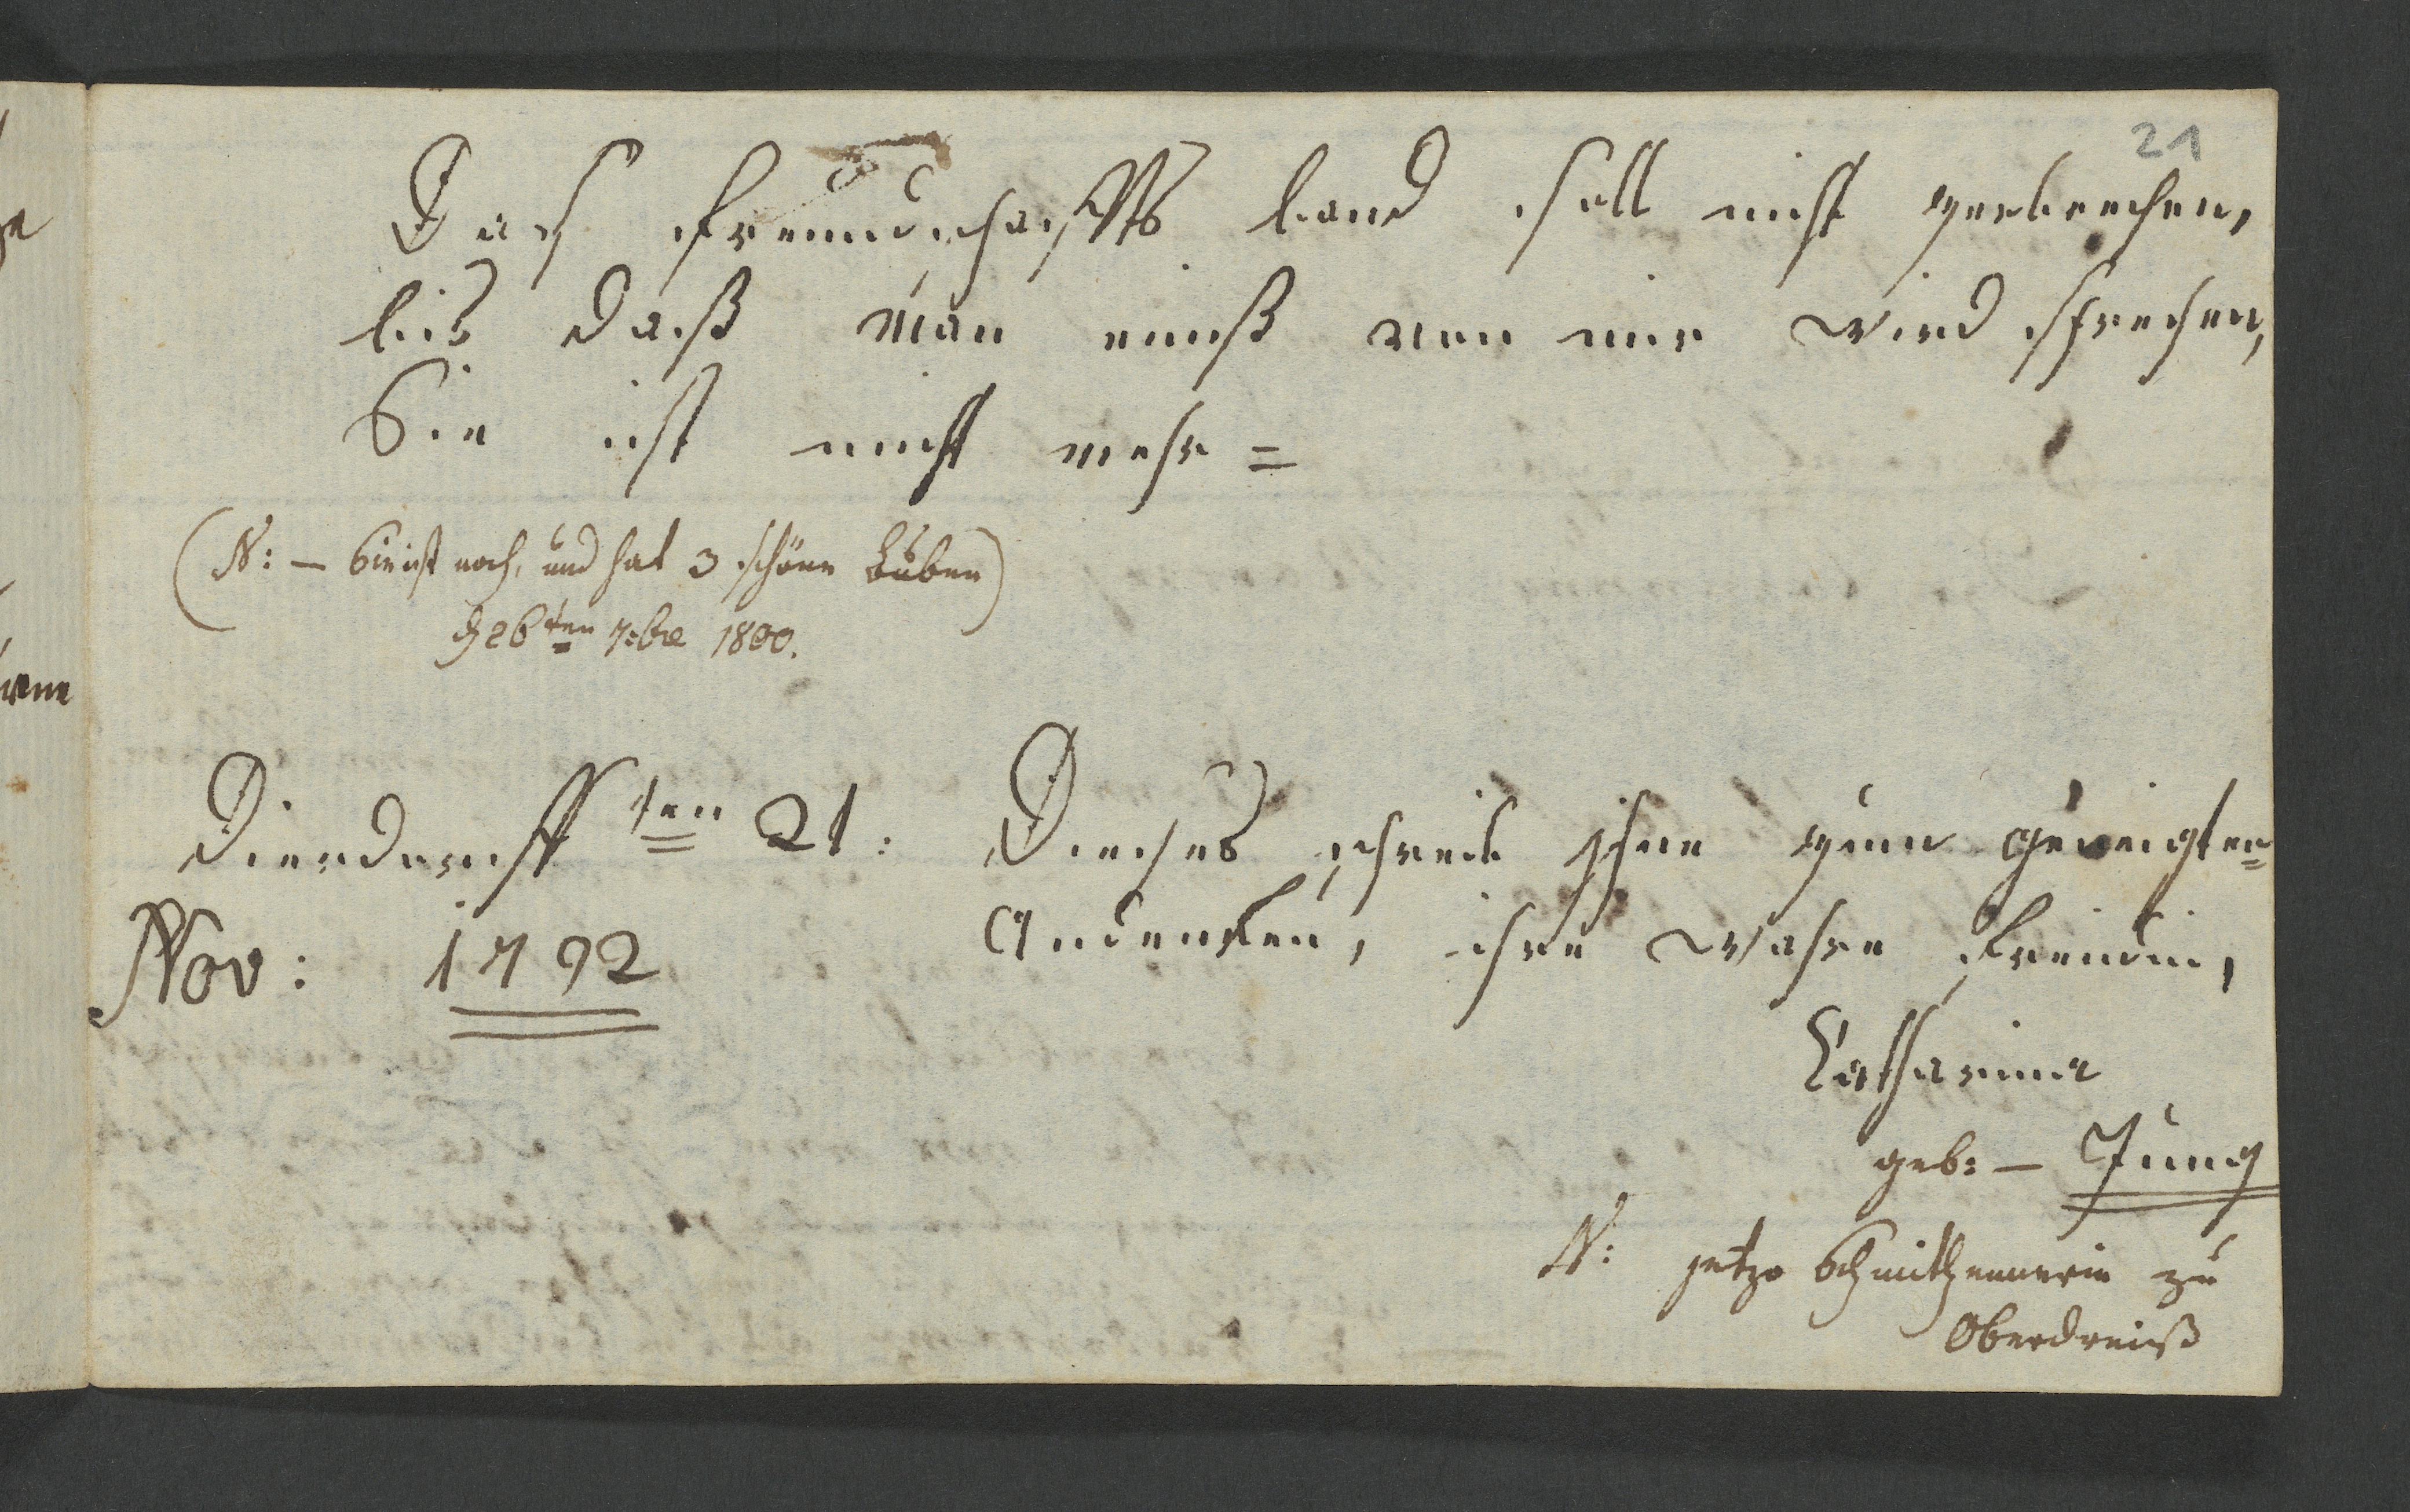 21
Das freundschaffts band soll nicht zerbrechen,
bis daß man einß von mir wird sprechen,
Sie ist nicht mehr =
(N: — Sie ist noch, und hat 3 schöne Buben)
d 26ten 7:bre 1800.
Dierdorff ten 21:
Nov: 1792
Dieses schreib ihne zum geneigten
Andenken, ihre wahre freindin,
Catharina
geb: — Jung
N: jetzo Schmitzennerin zu
Oberdreiß